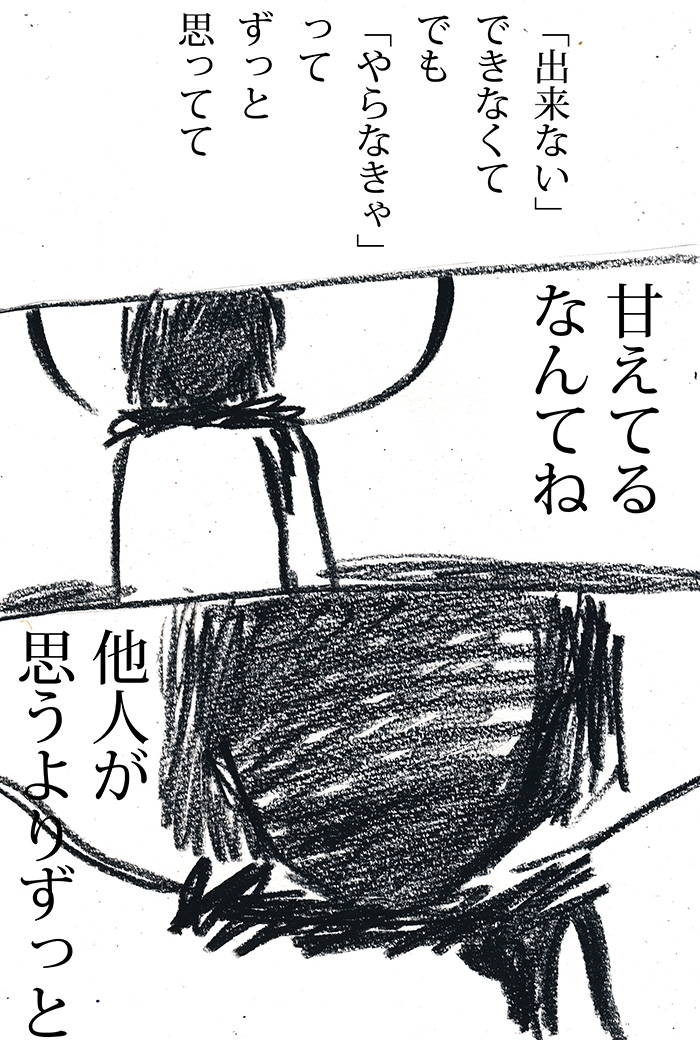 「出来ない」
できなくて
でも
「やらなきゃ」
って
ずっと
思ってて
甘えてる
なんてね
他人が
思うよりずっと